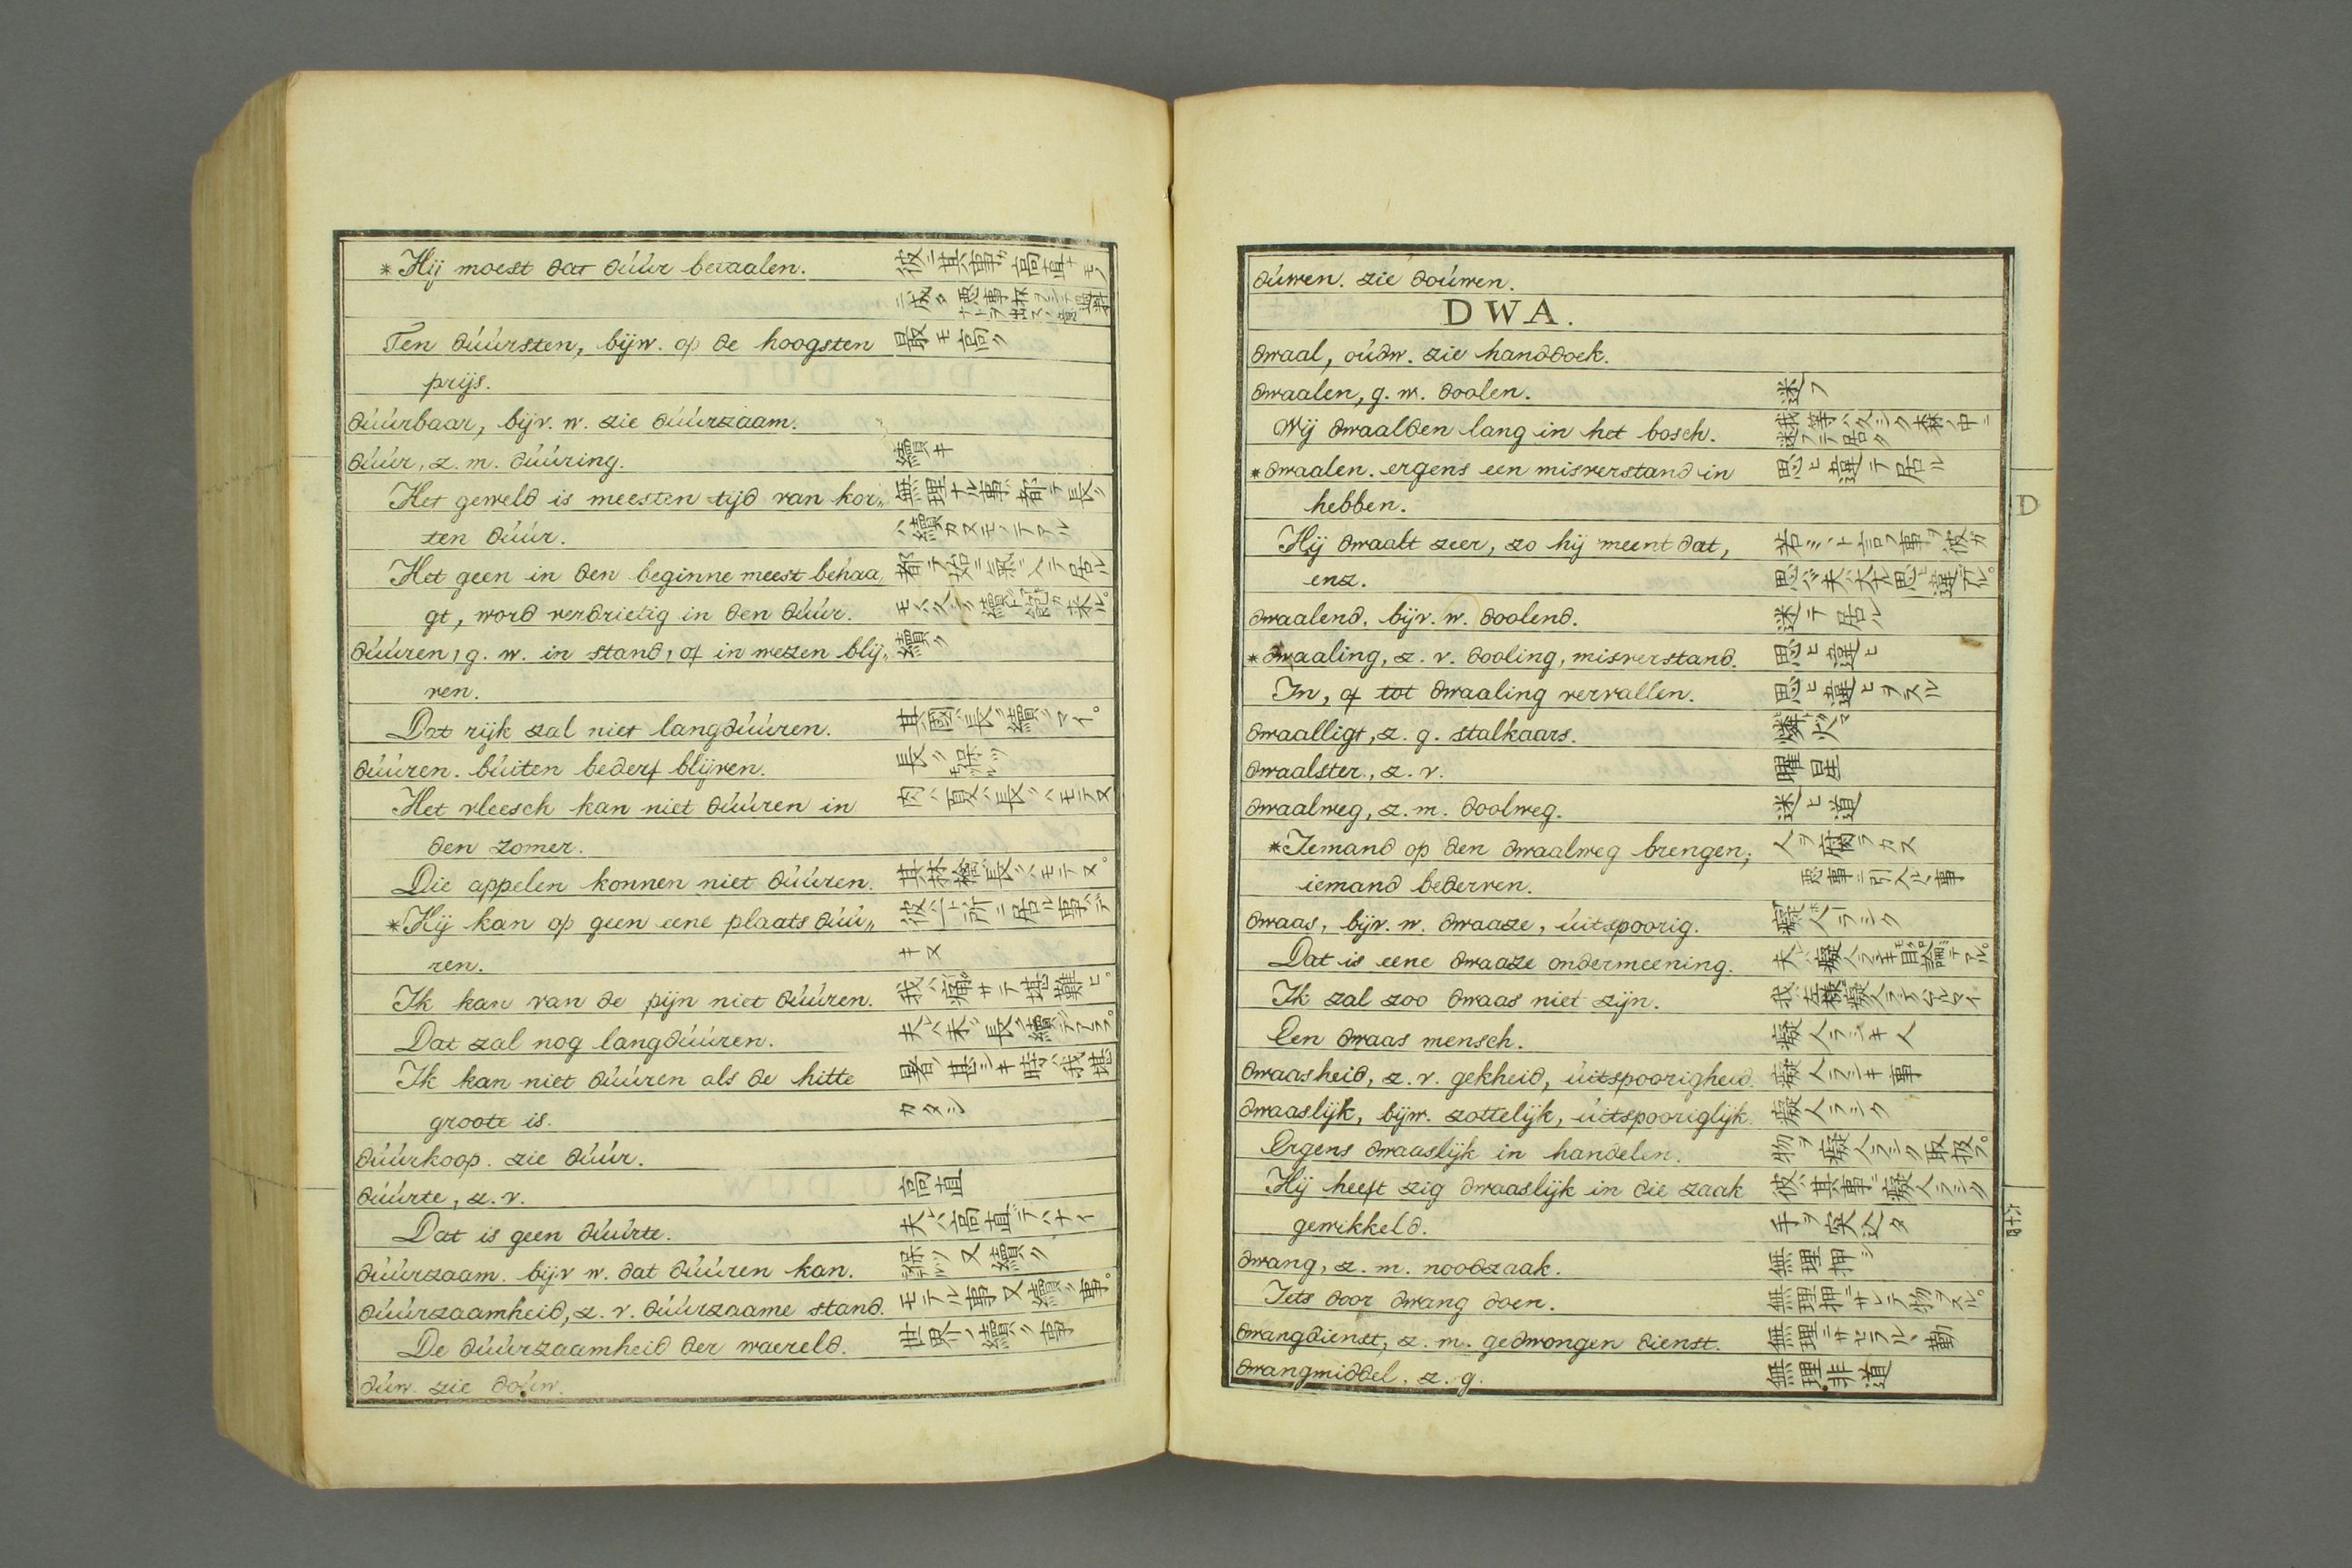 *Hij moest dat dúúr betaalen. 彼ニ其事ガ高直ナモノ
ニ成タ 悪事抔ヲシテ過料ナトヲ出スノ意
Ten dúúrsten, bijw. op de hoogsten 最モ高ク
prijs.
dúúrbaar, bijv. w. zie dúúrzaam.
dúúr, z. m. dúúring. 續キ
Het geweld is meesten tijd van kor„ 無理ナル事ハ都テ長ク
ten dúúr. ハ續カヌモノテアル
Het geen in den beginne meest behaa„ 都テ始ニ氣ニ入テ居ル
gt, word verdrietig in den dúúr.
dúúren, g. w. in stand, of in wezen blij„ 續ク
ven.
Dat rijk zal niet lang dúúren. 其國ハ長ク續クマイ。
dúúren. búiten bederf blijven. 長ク保ツ
Het vleesch kan niet dúúren in 肉ハ夏ハ長クハモテヌ
den zomer.
Die appelen konnen niet dúúren. 其林檎ハ長クハモテヌ。
*Hij kan op geen eene plaats dúú„ 彼ハ一所ニ居ル事ガデ
ren. キヌ
Ik kan van de pijn niet dúúren. 我ハ痛サデ堪難ヒ。
Dat zal nog lang dúúren. 夫レハ未ダ長ク續クデアラフ。
Ik kan niet dúúren als de hitte 暑ノ甚シキ時ハ我堪
groote is. カタシ
dúúrkoop. zie dúúr.
dúúrte, z. v. 高直
Dat is geen dúúrte. 夫レハ高直デハナイ
dúúrzaam. bijv w. dat dúúren kan. 保ツ 又續ク
dúúrzaamheid, z. v. dúúrzaame stand. モテル事又續ク事。
De dúúrzaamheid der waereld. 世界ノ續ク事
dúw. zie doúw.
dúwen. zie doúwen.
DWA.
dwaal, oúdw. zie handdoek.
dwaalen, g. w. doolen. 迷フ
Wij dwaalden lang in het bosch. 我等ハ久シク森ノ中ニ迷フテ居タ
*dwaalen. ergens een misverstand in 思ヒ違テ居ル
hebben.
Hij dwaalt zeer, zo hij meent dat, 若シ〻ト言フ事ヲ彼ガ
enz. 思ヘバ夫ハ大ナル思ヒ違デアル。
dwaalend. bijv. w. doolend. 迷テ居ル
*dwaaling, z. v. dooling, misverstand. 思ヒ違ヒ
In, of tot dwaaling vervallen. 思ヒ違ヒヲスル
dwaalligt, z. g. stalkaars. 燐火
dwaalster., z. v. 曜星
dwaalweg, z. m. doolweg. 迷ヒ道
*Iemand op den dwaalweg brengen; 人ヲ腐ラカス
iemand bederven. 悪事ニ引入ル事
dwaas, bijv. w. dwaaze, úitspoorig. 癡人ラシク
Dat is eene dwaaze ondermeening. 夫レハ癡人ラシキ目論デアル。
Ik zal zoo dwaas niet zijn.
Een dwaas mensch. 癡人ラシキ人
dwaasheid, z. v. gekheid, úitspoorigheid. 癡人ラシキ事
dwaaslijk, bijw. zottelijk, úitspooriglijk. 癡人ラシク
Ergens dwaaslijk in handelen. 物ヲ癡人ラシク取扱フ。
Hij heeft zig dwaaslijk in die zaak 彼ハ其事ニ癡人ラシク
gewikkeld. 手ヲ突込タ
dwang, z. m. noodzaak. 無理押シ
Iets door dwang doen. 無理押ニサレテ物ヲスル。
dwangdienst, z. m. gedwongen dienst. 無理ニサセラルヽ勤
dwangmiddel. z. g. 無理非道
D